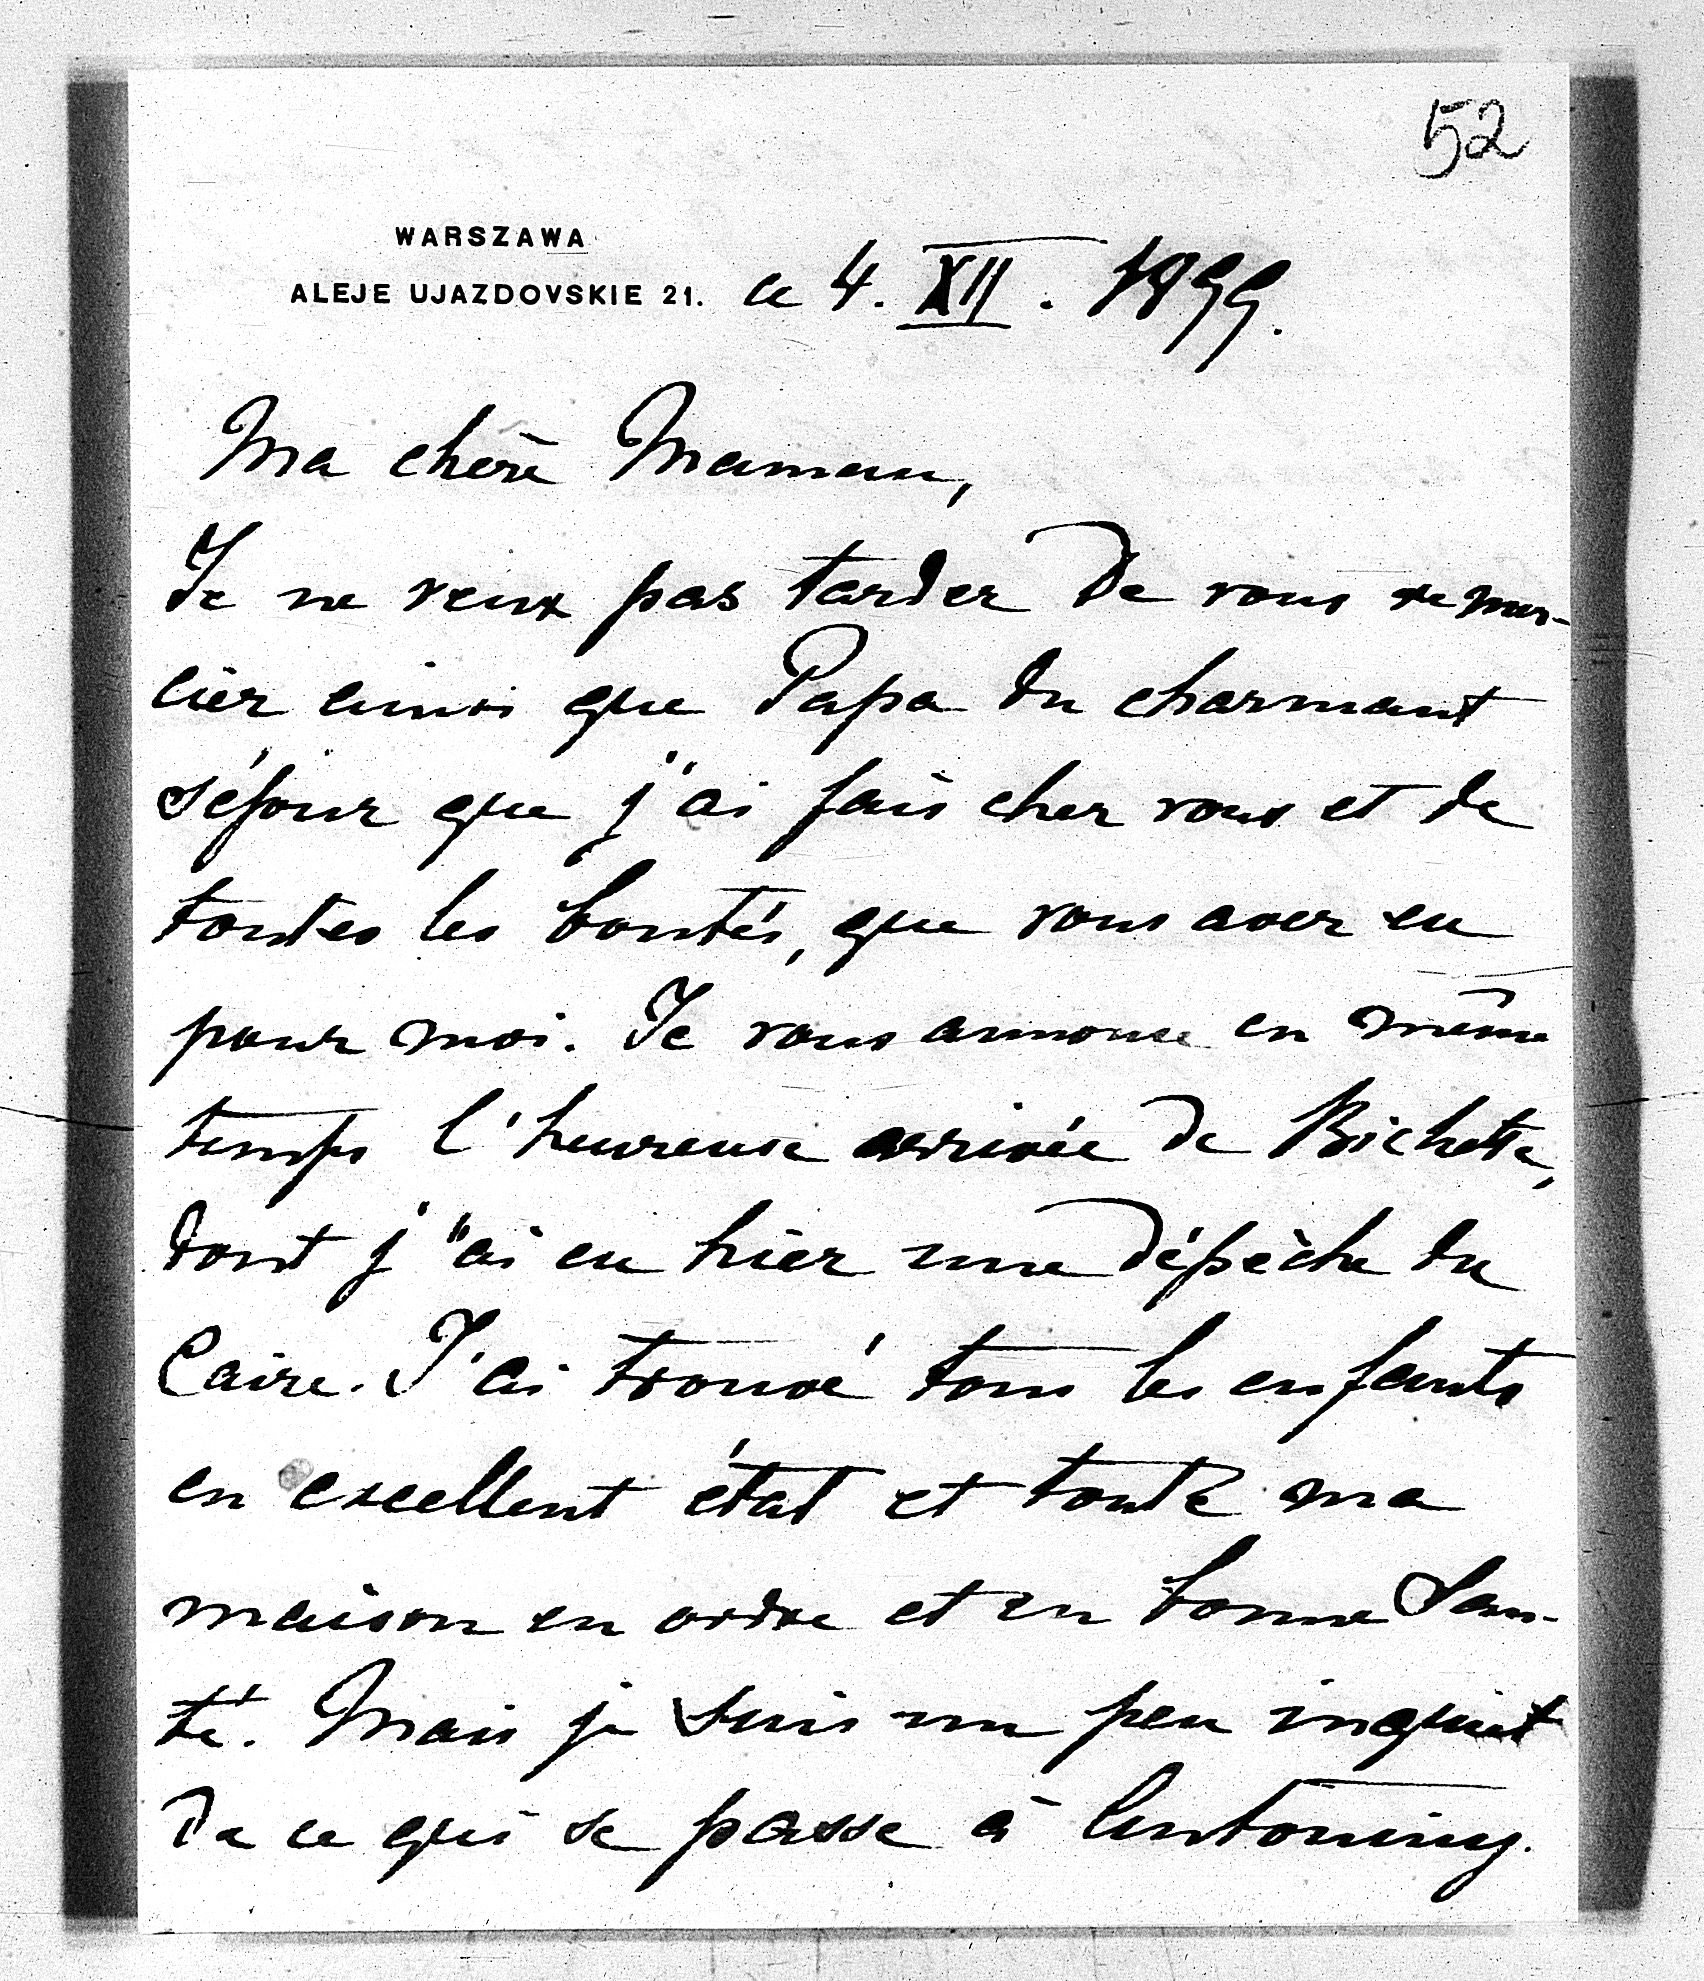 52
WARSZAWA
ALEJE UJAZDOVSKIE 21. ce 4. XII. 1899.
Ma chère Maman,
Je ne veux pas tarder de vous remer-
cier ainsi que Papa du charmant
séjour que j'ai fais chez vous et de
toutes les bontés, que vous avez eu
pour moi. Je vous annonce en même
temps l'heureuse arrivée de Bichette,
dont j'ai eu hier une dépèche du
Caire. J'ai trouvé tous les enfants
en excellent état et toute ma
maison en ordre et en bonne San-
té. Mais je suis un peu inquiet
de ce qui se passe à Antoniny.